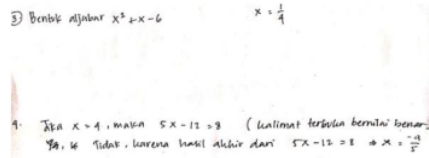 ③ Bentuk aljabar x² + x - 6    x = 1/4
4. Jika x = 4, maka 5x - 12 = 8 (kalimat terbuka bernilai benar
Tidak, karena hasil akhir dari 5x - 12 = 8 ⇒ x = -4/5